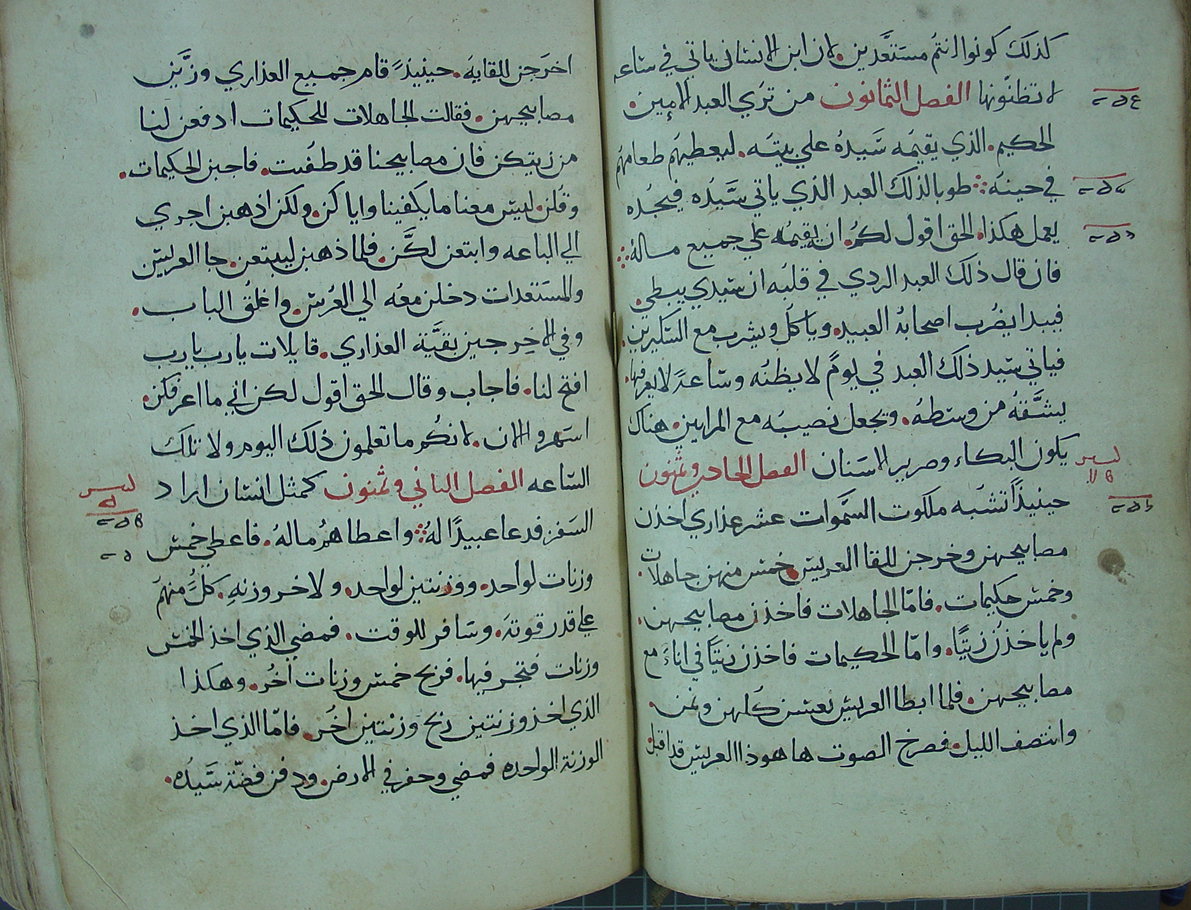 كذلك كونوا انتم مستعدين. لان ابن الانسان ياتي في ساعه
لا تظنونها الفصل الثمانون من تري العبد الامين.
الحكيم. الذي يقيمه سيده علي بيته. ليعطيهم طعامهم
في حينه: طوبا لذلك العبد الذي ياتي سيده فيجده
يعمل هكذا. الحق اقول لكم. انه يقيمه علي جميع ماله:
فان قال ذلك العبد الردي في قلبه ان سيدي يبطي.
فيبدا يضرب اصحابه العبيد. وياكل ويشرب مع السكيرين.
فياتي سيد ذلك العبد في يوم لا يظنه وساعة لا يعرفها.
يشقه من وسطه. ويجعل نصيبه مع المرايين. هناك
يكون البكاء وصرير الاسنان الفصل الحادي وثمنون
حينيذ تشبه ملكوت السموات عشر عذاري اخذن
مصابيحهن وخرجن للقا العريس. خمس منهن جاهلات
وخمس حكيمات. فاما الجاهلات فاخذن مصابيحهن.
ولم ياخذن زيتا. واما الحكيمات فاخذن زيتا في اناء مع
مصابيحهن. فلما ابطا العريس نعسن كلهن ونمن.
وانتصف الليل. فصرخ الصوت ها هوذا العريس قد اقبل
اخرجن للقايه. حينيذ قام جميع العذاري وزين
مصابيحهن. فقالت الجاهلات للحكيمات ادفعن لنا
من زيتكن فان مصابيحنا قد طفيت. فاجبن الحكيمات.
وقلن. ليس معنا ما يكفينا واياكن. ولكن اذهبن احري
الي الباعه وابتعن لكن. فلما ذهبن ليبتعن. جا العريس
والمستعدات دخلن معه الي العرس. واغلق الباب.
وفي الاخر جين بقية العذاري. قايلات يا رب يا رب
افتح لنا. فاجاب وقال الحق اقول لكن اني ما اعرفكن.
اسهروا الان. لانكم ما تعلمون ذلك اليوم ولا تلك
الساعه الفصل الثاني وثمنون كمثل انسان اراد
السفر فدعا عبيدا له: واعطاهم ماله. فاعطي خمس
وزنات لواحد. ووزنتين لواحد. ولاخر وزنه. كل منهم
علي قدر قوته. وسافر للوقت. فمضي الذي اخذ الخمس
وزنات فتجر فيها. فربح خمس وزنات اخر. وهكذا
الذي اخذ وزنتين ربح وزنتين اخر. فاما الذي اخذ
الوزنة الواحده فمضي وحفر في الارض. ودفن فضة سيده.